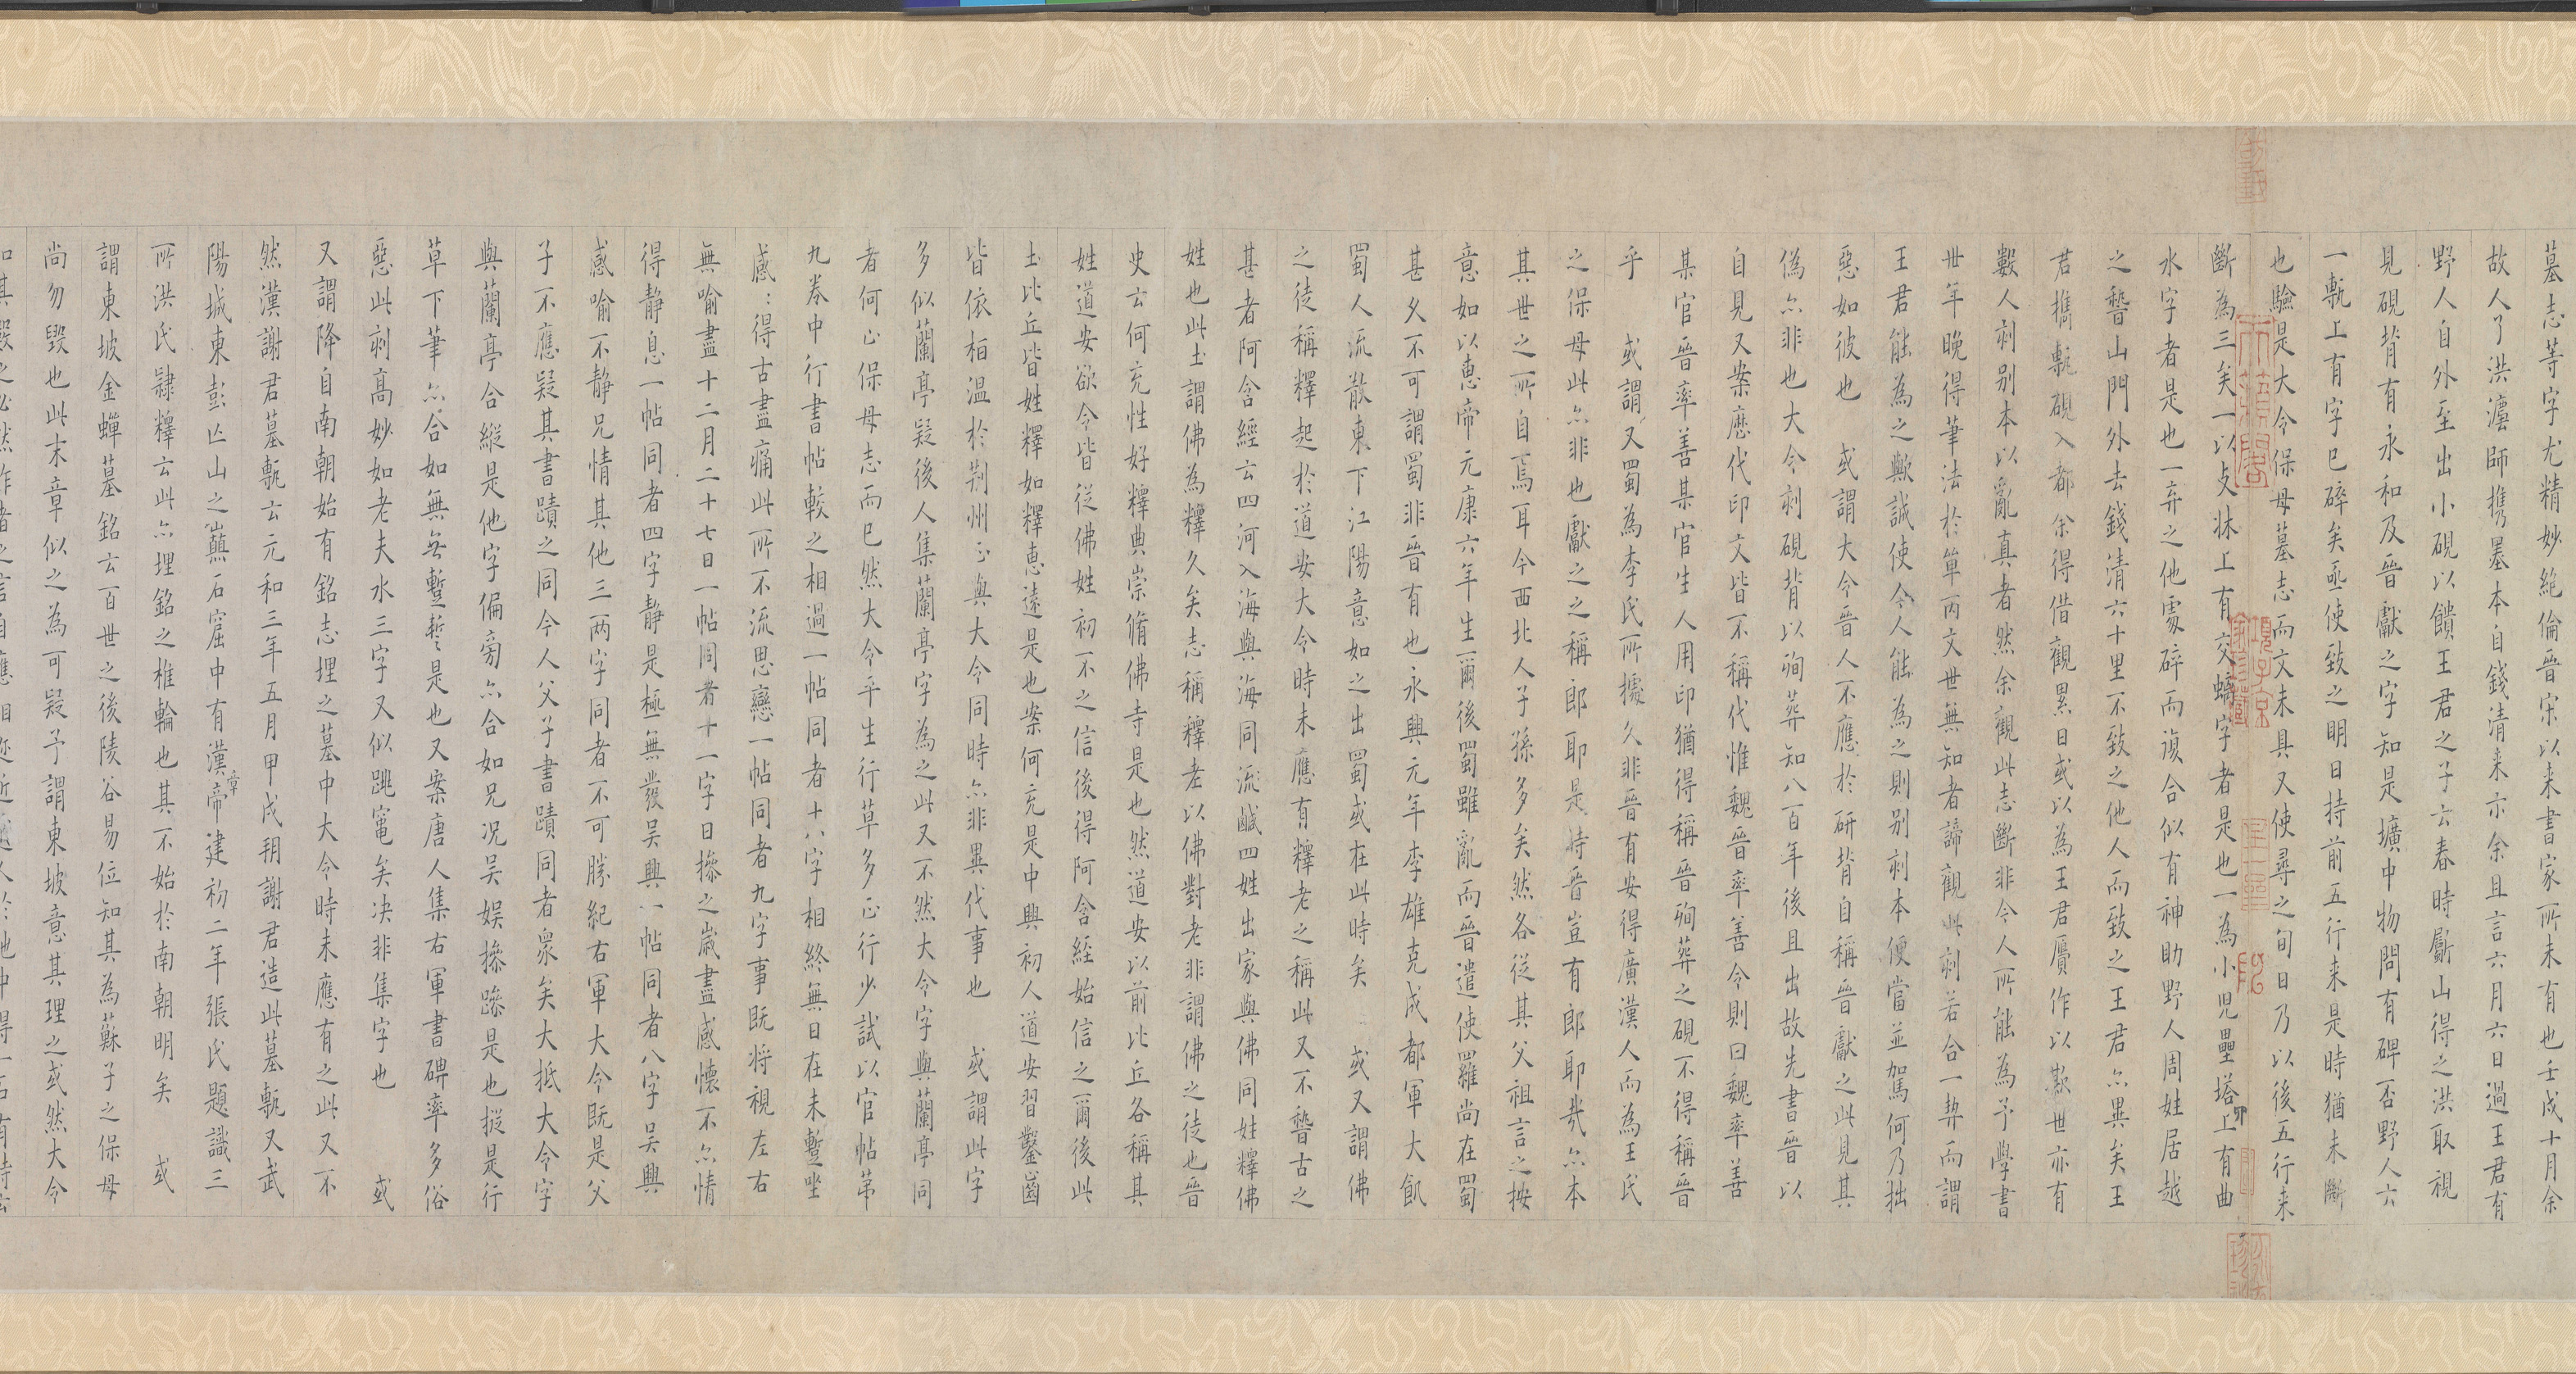 墓志等字尤精妙絕倫晉宋以来書家所未有也壬戌十月余
故人了洪灋師携墨本自錢清来示余且言六月六日過王君有
野人自外至出小硯以饋王君之子云春時斸山得之洪取視
見硯背有永和及晉獻之字知是壙中物問有碑否野人六
一甎上有字已碎矣亟使致之明日持前五行来是時猶未斷
也驗是大令保母墓志而文未具又使尋之旬日乃以後五行来
斷為三矣一以支牀上有交螭字者是也一為小児壘塔上有曲
水字者是也一弃之他處碎而復合似有神助野人周姓居越
之稽山門外去錢清六十里不致之他人而致之王君亦異矣王
君攜甎硯入都余得借觀累日或以為王君贋作以欺世亦有
數人刻别本以亂真者然余觀此志斷非今人所能為予學書
卅年晚得筆法於單丙文世無知者諦觀此刻若合一契而謂
王君能為之歟誠使今人能為之則别刻本便當並駕何乃拙
惡如彼也 或謂大令晉人不應於研背自稱晉獻之此見其
偽亦非也大令刻硯背以殉葬知八百年後且出故先書晉以
自見又案歷代印文皆不稱代惟魏晉率善令則曰魏率善
某官晉率善某官生人用印猶得稱晉殉葬之硯不得稱晉
乎 或謂又蜀為李氏所據久非晉有安得廣漢人而為王氏
之保母此亦非也獻之之稱郎耶是時晉豈有郎耶哉亦本
其世之所自焉耳今西北人子孫多矣然各從其父祖言之按
意如以惠帝元康六年生爾後蜀雖亂而晉遣使羅尚在蜀
甚久不可謂蜀非晉有也永興元年李雄克成都軍大飢
蜀人流散東下江陽意如之出蜀或在此時矣 或又謂佛
之徒稱釋起於道安大令時未應有釋老之稱此又不稽古之
甚者阿含經云四河入海與海同流鹹四姓出家與佛同姓釋佛
姓也此土謂佛為釋久矣志稱釋老以佛對老非謂佛之徒也晉
史云何充性好釋典崇脩佛寺是也然道安以前比丘各稱其
姓道安欲令皆從佛姓初不之信後得阿含経始信之爾後此
土比丘皆姓釋如釋惠遠是也案何充是中興初人道安習鑿齒
皆依栢温於荆州正與大令同時亦非異代事也 或謂此字
多似蘭亭疑後人集蘭亭字為之此又不然大令字與蘭亭同
者何止保母志而已然大令平生行草多正行少試以官帖苐
九卷中行書帖較之相過一帖同者十八字相終無日在未蹔㘴
感〻得古盡痛此所不流思戀一帖同者九字事既将視左右
無喻盡十二月二十七日一帖同者十一字日摻之嵗盡感懷不亦情
得静息一帖同者四字静是極無發吴興一帖同者八字吴興
感喻不静兄情其他三两字同者不可勝紀右軍大令既是父
子不應疑其書蹟之同今人父子書蹟同者衆矣大抵大令字
與蘭亭合縦是他字偏旁亦合如兄况吴娱摻躁是也掟是行
草下筆亦合如無兂蹔蹔是也又案唐人集右軍書碑率多俗
惡此刻髙妙如老夫水三字又似跳竃矣决非集字也 或
又謂降自南朝始有銘志埋之墓中大令時未應有之此又不
然漢謝君墓甎云元和三年五月甲戌朔謝君造此墓甎又武
陽城東彭亾山之巔石窟中有漢章帝建初二年張氏題識三
所洪氏隷釋云此亦埋銘之椎輪也其不始於南朝明矣 或
謂東坡金蟬墓銘云百世之後陵谷易位知其為蘇子之保母
尚勿毁也此末章似之為可疑予謂東坡意其理之或然大令